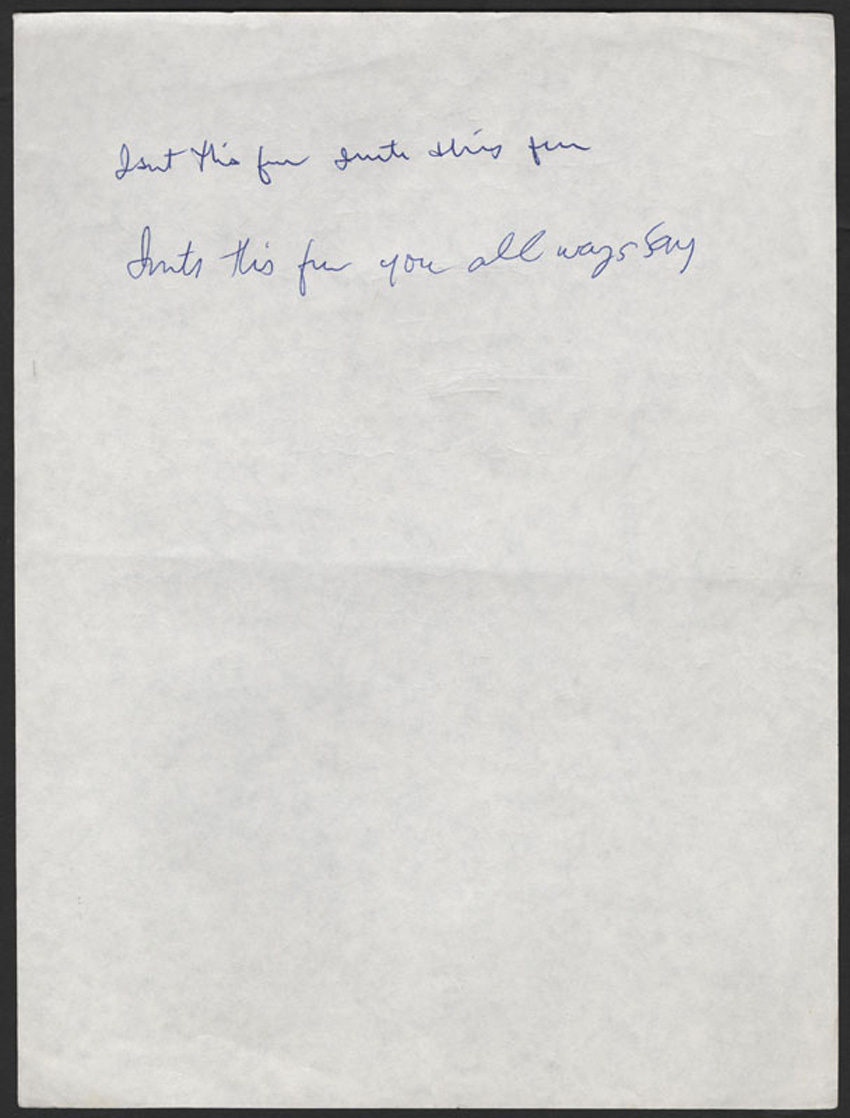 Isnt this fun Isnts this fun
Isnts this fun you all ways Say